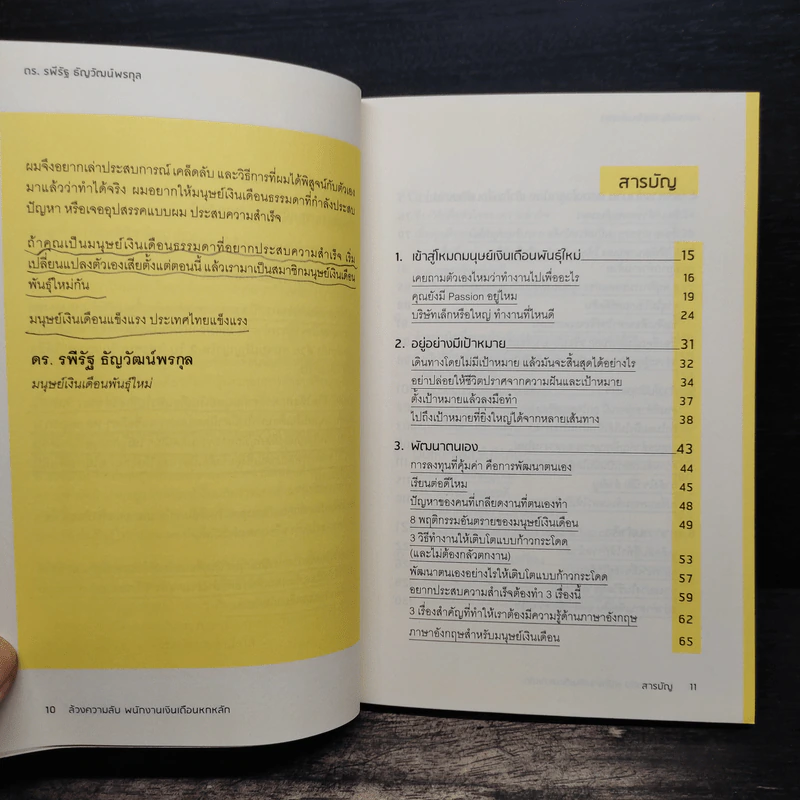 ดร. รพีรัฐ ธัญวัฒน์พรกุล
ผมจึงอยากเล่าประสบการณ์ เคล็ดลับ และวิธีการที่ผมได้พิสูจน์กับตัวเอง
มาแล้วว่าทำได้จริง ผมอยากให้มนุษย์เงินเดือนธรรมดาที่กำลังประสบ
ปัญหา หรือเจออุปสรรคแบบผม ประสบความสำเร็จ
ถ้าคุณเป็นมนุษย์เงินเดือนธรรมดาที่อยากประสบความสำเร็จ เริ่ม
เปลี่ยนแปลงตัวเองเสียตั้งแต่ตอนนี้ แล้วเรามาเป็นสมาชิกมนุษย์เงินเดือน
พันธุ์ใหม่กัน
มนุษย์เงินเดือนแข็งแรง ประเทศไทยแข็งแรง
ดร. รพีรัฐ ธัญวัฒน์พรกุล
มนุษย์เงินเดือนพันธุ์ใหม่
10 ล้วงความลับ พนักงานเงินเดือนหกหลัก
สารบัญ
1. เข้าสู่โหมดมนุษย์เงินเดือนพันธุ์ใหม่ 15
เคยถามตัวเองไหมว่าทำงานไปเพื่ออะไร 16
คุณยังมี Passion อยู่ไหม 19
บริษัทเล็กหรือใหญ่ ทำงานที่ไหนดี 24
2. อยู่อย่างมีเป้าหมาย 31
เดินทางโดยไม่มีเป้าหมาย แล้วมันจะสิ้นสุดได้อย่างไร 32
อย่าปล่อยให้ชีวิตปราศจากความฝันและเป้าหมาย 34
ตั้งเป้าหมายแล้วลงมือทำ 37
ไปถึงเป้าหมายที่ยิ่งใหญ่ได้จากหลายเส้นทาง 38
3. พัฒนาตนเอง 43
การลงทุนที่คุ้มค่า คือการพัฒนาตนเอง 44
เรียนต่อดีไหม 45
ปัญหาของคนที่เกลียดงานที่ตนเองทำ 48
8 พฤติกรรมอันตรายของมนุษย์เงินเดือน 49
3 วิธีทำงานให้เติบโตแบบก้าวกระโดด
(และไม่ต้องกลัวตกงาน) 53
พัฒนาตนเองอย่างไรให้เติบโตแบบก้าวกระโดด 57
อยากประสบความสำเร็จต้องทำ 3 เรื่องนี้ 59
3 เรื่องสำคัญที่ทำให้เราต้องมีความรู้ด้านภาษาอังกฤษ 62
ภาษาอังกฤษสำหรับมนุษย์เงินเดือน 65
สารบัญ 11